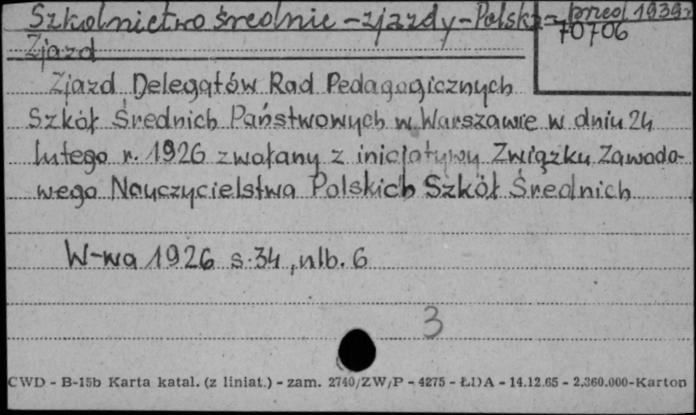 Szkolnictwo średnie - zjazdy - Polska - przed 1939 r.
70706
Zjazd
Zjazd Delegatów Rad Pedagogicznych
Szkół Średnich Państwowych w Warszawie w dniu 24
lutego r. 1926 zwołany z inicjatywy Związku Zawodo-
wego Nauczycielstwa Polskich Szkół Średnich
W-wa 1926 s. 34, nlb. 6
3
CWD - B-15b Karta katal. (z liniat.) - zam. 2740/ZW/P - 4275 - ŁDA - 14.12.65 - 2.360.000-Karton